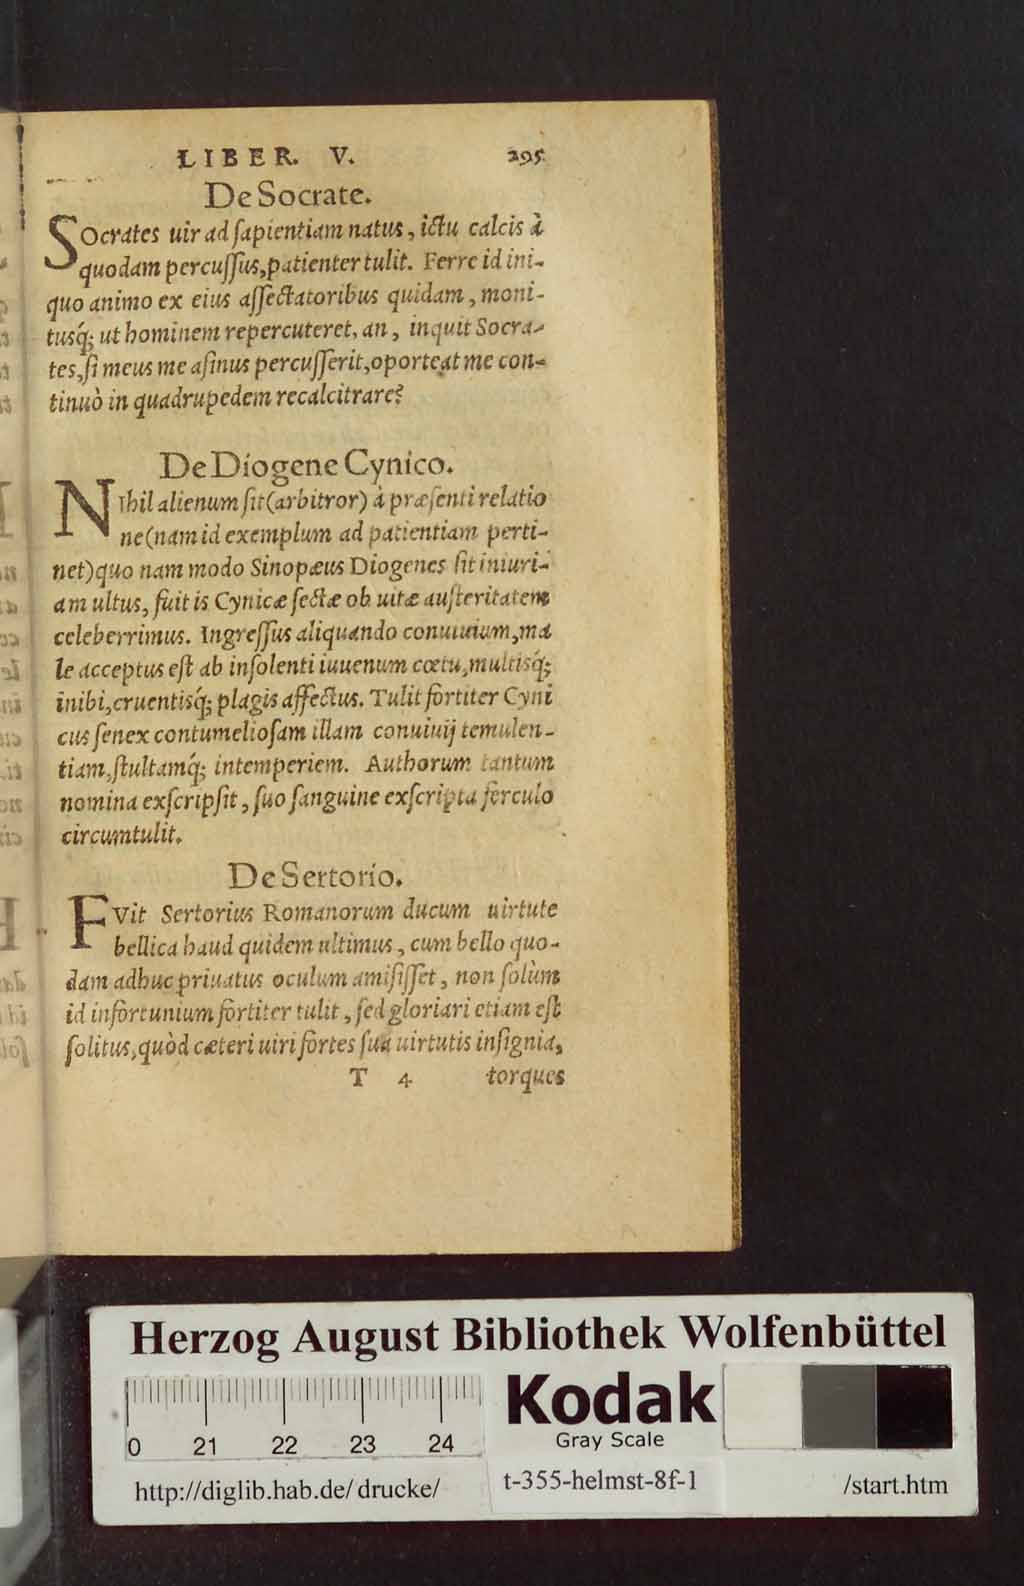 LIBER. V. 295
De Socrate.
SOcrates uir ad ſapientiam natus, ictu calcis à
quodam percuſſus, patienter tulit. Ferre id ini-
quo animo ex eius aſſectatoribus quidam, moni-
tusq́; ut hominem repercuteret, an, inquit Socra-
tes, ſi meus me aſinus percuſſerit, oporteat me con-
tinuò in quadrupedem recalcitrare?
De Diogene Cynico.
NIhil alienum ſit (arbitror) à præſenti relatio
ne (nam id exemplum ad patientiam perti-
net) quo nam modo Sinopæus Diogenes ſit iniuri-
am ultus, fuit is Cynicæ ſectæ ob uitæ auſteritatem
celeberrimus. Ingreſſus aliquando conuiuium, ma
le acceptus eſt ab inſolenti iuuenum cœtu, multisq́;
inibi, cruentisq́; plagis affectus. Tulit fortiter Cyni
cus ſenex contumelioſam illam conuiuij temulen-
tiam, ſtultamq́; intemperiem. Authorum tantum
nomina exſcripſit, ſuo ſanguine exſcripta ferculo
circumtulit.
De Sertorio.
FVit Sertorius Romanorum ducum uirtute
bellica haud quidem ultimus, cum bello quo-
dam adhuc priuatus oculum amiſiſſet, non ſolùm
id infortunium fortiter tulit, ſed gloriari etiam eſt
ſolitus, quòd cæteri uiri fortes ſua uirtutis inſignia,
T 4 torques
Herzog August Bibliothek Wolfenbüttel
Kodak
Gray Scale
0 21 22 23 24
http://diglib.hab.de/drucke/ t-355-helmst-8f-1 /start.htm